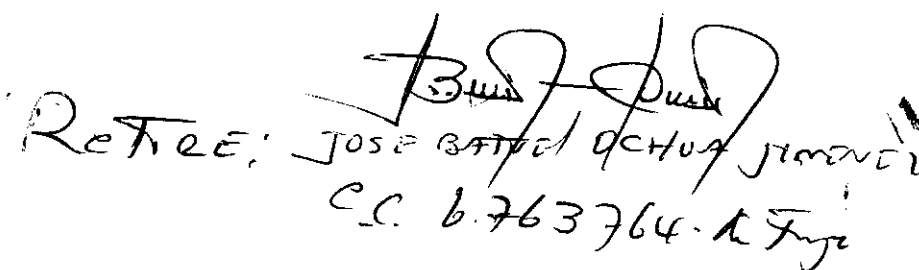 RETIRE: JOSE OCHOA JIMENEZ
C.C. 6.763764. de Tunja